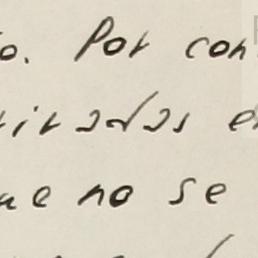 o. Por con
tiradas e
ue no se